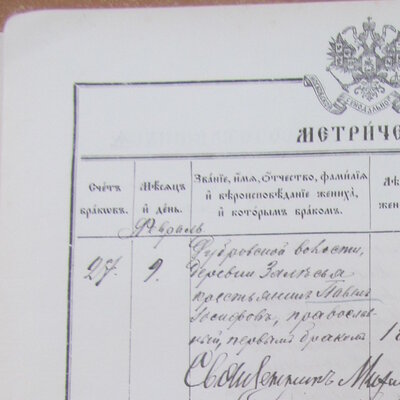 МЕТРИЧЕ
Счетъ браковъ.
Мѣсяцъ и день.
Званіе, имя, отчество, фамилія и вѣроисповѣданіе жениха, и которымъ бракомъ.
Февраль
27.
9.
Дубровской волости,
деревни Залѣсья
крестьянинъ Павелъ
Іосифовъ, правосла-
вный, первымъ бракомъ
Священникъ